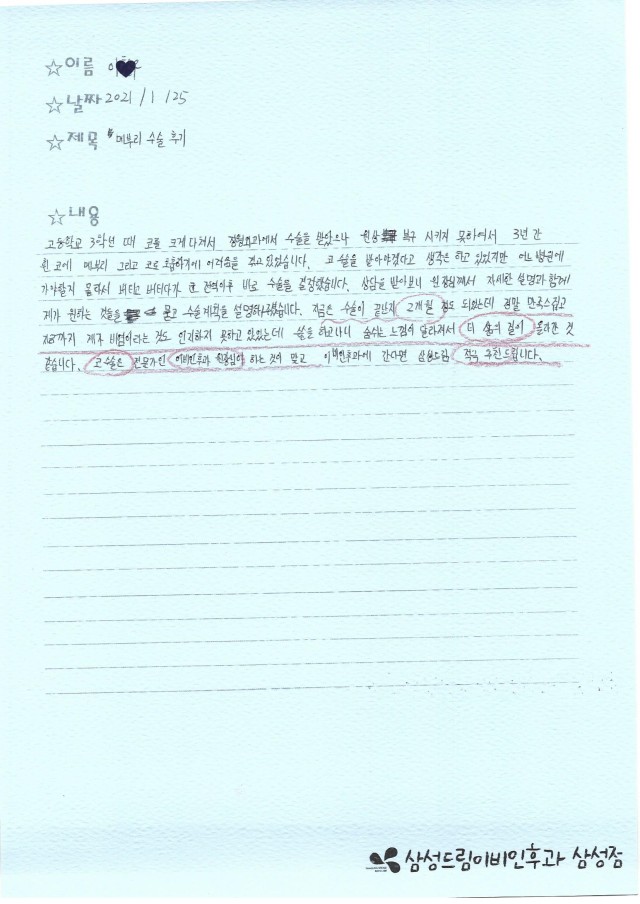 ☆이름
☆날짜 2021 / 1 / 25
☆제목 메부리 수술 후기
☆내용
고등학교 3학년 때 코를 크게 다쳐서 정형외과에서 수술을 받았으나 원상 복구 시키지 못하여서 3년 간
휜 코에 메부리 그리고 코로 호흡하기에 어려움을 겪고 있었습니다. 코 수술을 받아야겠다고 생각은 하고 있었지만 어느 병원에
가야할지 몰라서 버티고 버티다가 전역이후 바로 수술을 결정했습니다. 상담을 받아보니 원장님께서 자세한 설명과 함께
제가 원하는 것들을 묻고 수술계획을 설명해주셨습니다. 지금은 수술이 끝난지 2개월 정도 되었는데 정말 만족스럽고
지금까지 제가 비염이라는 것도 인지하지 못하고 있었는데 수술을 하고나니 숨쉬는 느낌이 달라져서 더 삶의 질이 올라간 것
같습니다. 코 수술은 전문가인 이비인후과 원장님이 하는 것이 맞고 이비인후과에 간다면 삼성드림 적극 추천드립니다.
삼성드림이비인후과 삼성점